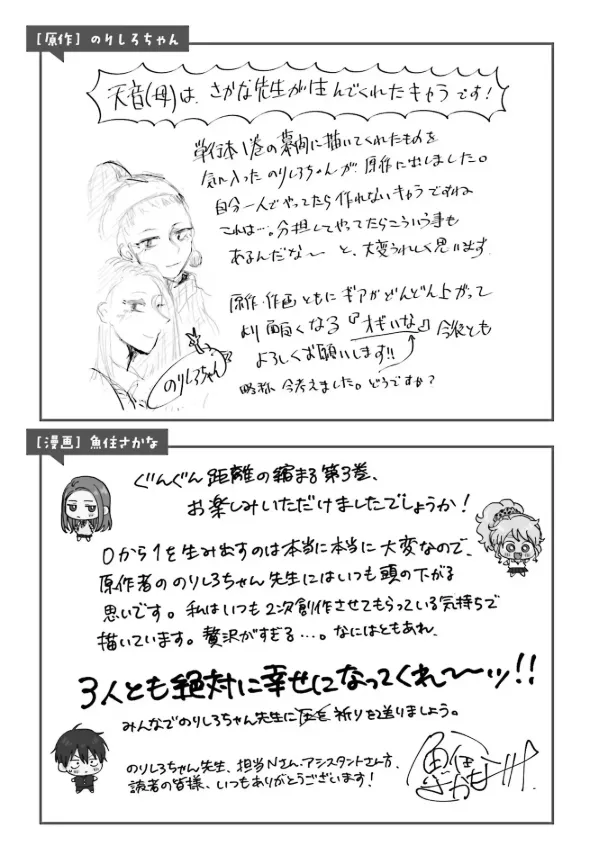 [原作] のりしろちゃん
天音(母)は、さかな先生が生んでくれたキャラです!
単行本1巻の幕間に描いてくれたものを
気に入ったのりしろちゃんが、原作に出しました。
自分一人でやってたら作れないキャラですね
これは…。分担してやってたらこういう事も
あるんだな〜 と、大変うれしく思います。
原作・作画ともにギアがどんどん上がって
より面白くなる『オサいな』今後とも
よろしくお願いします!!
略称 今考えました。どうですか?
のりしろちゃん
[漫画] 魚住さかな
ぐんぐん距離の縮まる第3巻、
お楽しみいただけましたでしょうか!
0から1を生み出すのは本当に本当に大変なので、
原作者ののりしろちゃん先生にはいつも頭の下がる
思いです。私はいつも2次創作させてもらっている気持ちで
描いています。贅沢がすぎる…。なにはともあれ、
3人とも絶対に幸せになってくれ〜〜ッ!!
みんなでのりしろちゃん先生に圧を祈りを送りましょう。
のりしろちゃん先生、担当Nさん、アシスタントさん方、
読者の皆様、いつもありがとうございます!
魚住さかな